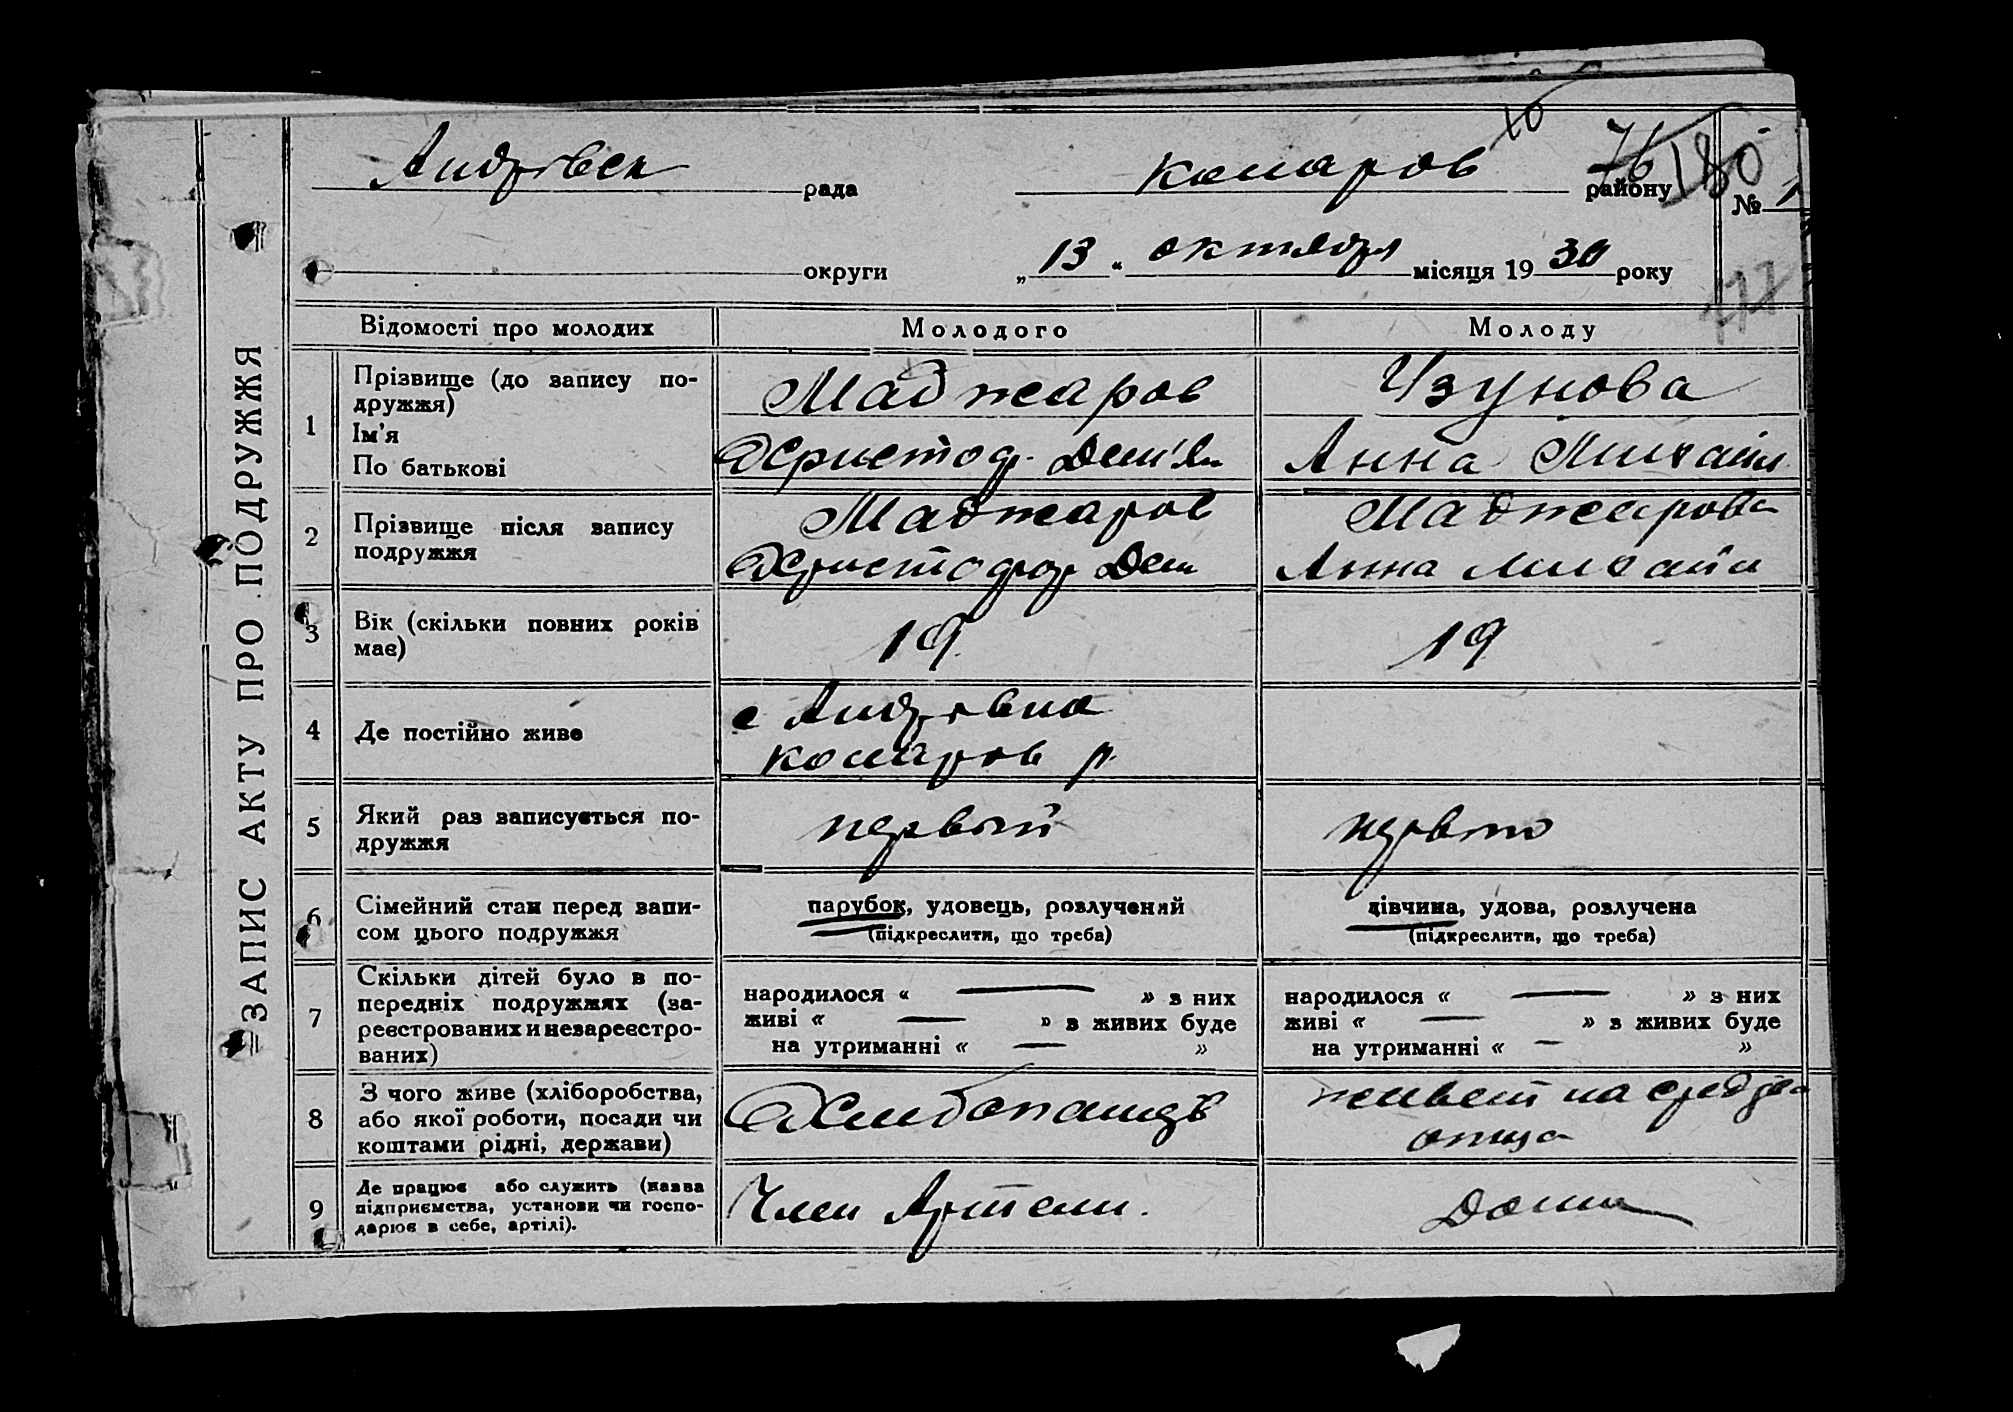 ЗАПИС АКТУ ПРО ПОДРУЖЖЯ
Андрівск рада
Комаров району
76 180
№ 1
округи
„ 13 “ октября місяця 19 30 року
177
Відомості про молодих
Молодого
Молоду
1
Прізвище (до запису по-
дружжя)
Ім'я
По батькові
Маджаров
Христоф. Дем'ян
Узунова
Анна Михайл
2
Прізвище після запису
подружжя
Маджаров
Христофор Дем
Маджарова
Анна Михайл
3
Вік (скільки повних років
має)
19
19
4
Де постійно живе
с Андрівка
Комаров р.
5
Який раз записується по-
дружжя
первый
первый
6
Сімейний стан перед запи-
сом цього подружжя
парубок, удовець, розлучений
(підкреслити, що треба)
дівчина, удова, розлучена
(підкреслити, що треба)
7
Скільки дітей було в по-
передніх подружжях (за-
реєстрованих и незареєстро-
ваних)
народилося « — » з них
живі « — » з живих буде
на утриманні « — »
народилося « — » з них
живі « — » з живих буде
на утриманні « — »
8
З чого живе (хліборобства,
або якої роботи, посади чи
коштами рідні, держави)
Хлибопашць
живет на средства
отца
9
Де працює або служить (назва
підприємства, установи чи госпо-
дарює в себе, артілі).
Член Артели.
Дома